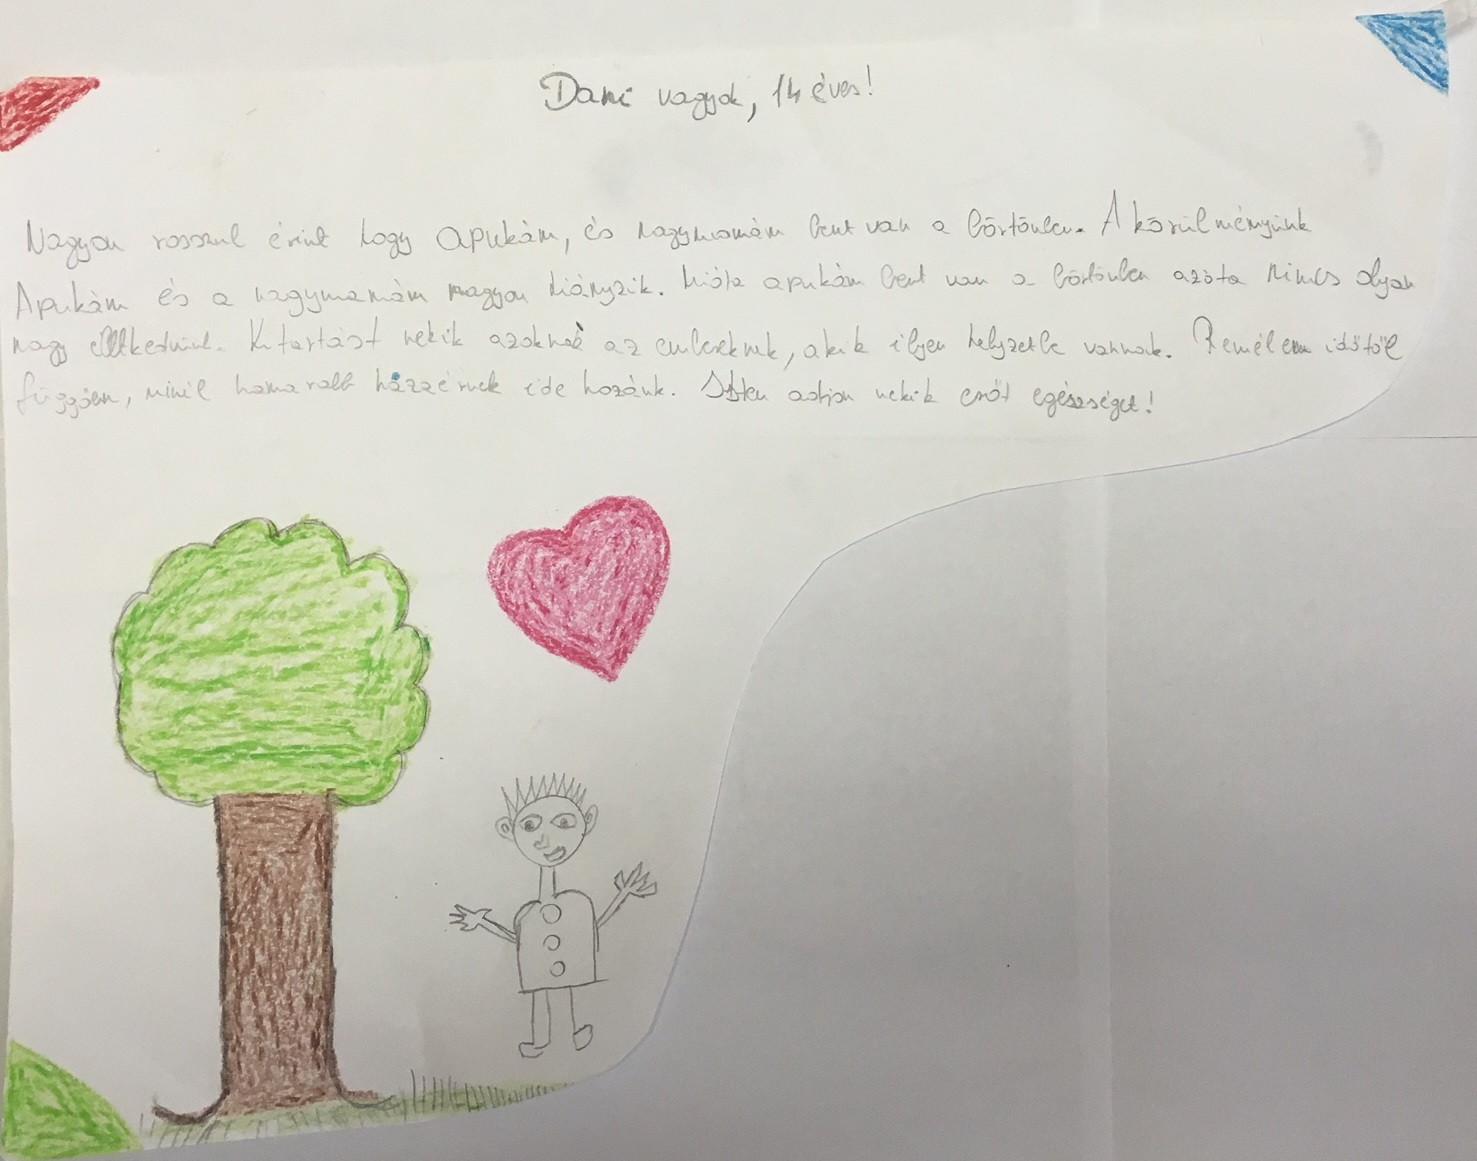 Dani vagyok, 14 éves!
Nagyon rosszul érint hogy apukám, és nagymamám bent van a börtönben. A körülményünk
Apukám és a nagymamám nagyon hiányzik. Mióta apukám bent van a börtönben azóta nincs olyan
nagy Kitartást nekik azoknak az embereknek, akik ilyen helyzetbe vannak. Remélem időtől
függően, minél hamarabb ide hozánk. Isten adjon nekik erőt egészséget!